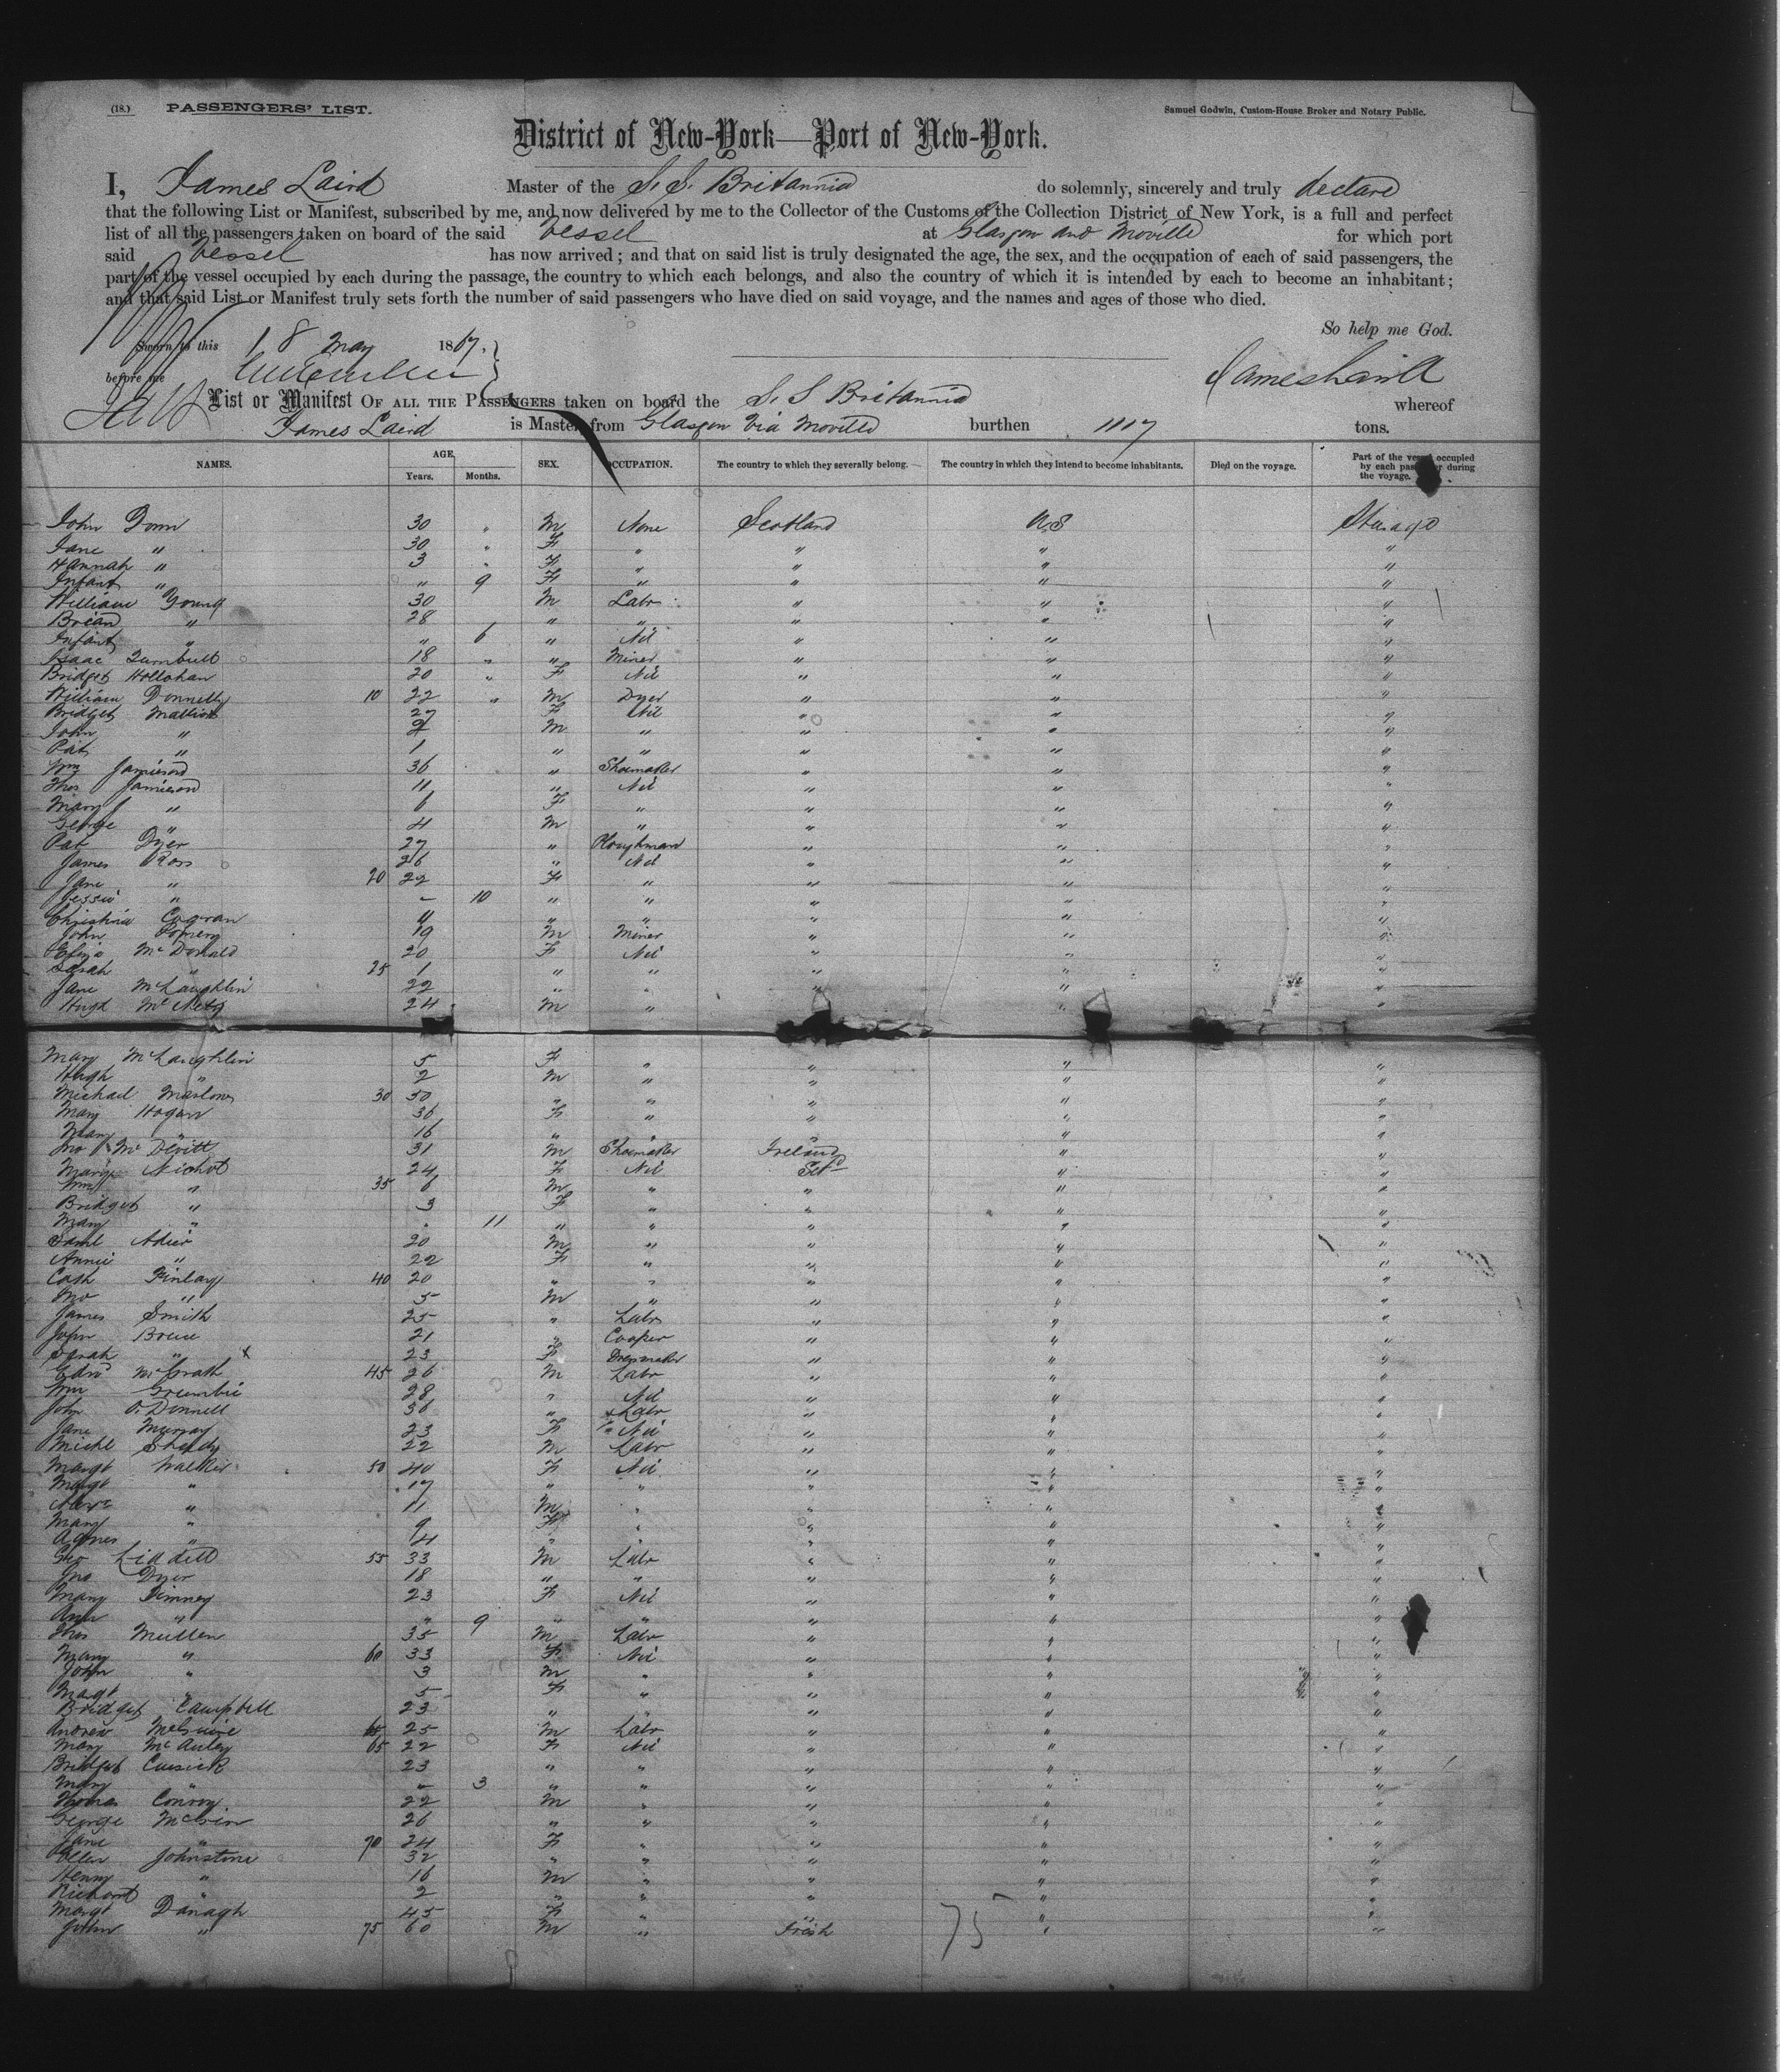 (18.) PASSENGERS' LIST. Samuel Godwin, Custom-House Broker and Notary Public.
District of New-York—Port of New-York.
I, James Laird Master of the S. S. Britannia do solemnly, sincerely and truly declare
that the following List or Manifest, subscribed by me, and now delivered by me to the Collector of the Customs of the Collection District of New York, is a full and perfect
list of all the passengers taken on board of the said Vessel at Glasgow and Moville for which port
said Vessel has now arrived; and that on said list is truly designated the age, the sex, and the occupation of each of said passengers, the
part of the vessel occupied by each during the passage, the country to which each belongs, and also the country of which it is intended by each to become an inhabitant;
and that said List or Manifest truly sets forth the number of said passengers who have died on said voyage, and the names and ages of those who died.
So help me God.
Sworn to this 18 May 1867.
before me
James Laird
List or Manifest OF ALL THE PASSENGERS taken on board the S. S Britannia whereof
James Laird is Master, from Glasgow Via Moville burthen 1117 tons.
NAMES. AGE, Years. Months. SEX. OCCUPATION. The country to which they severally belong. The country in which they intend to become inhabitants. Died on the voyage. Part of the vessel occupied by each passenger during the voyage.
John Dunn 30 " M None Scotland U.S Steerage
Jane " 30 " F " " " "
Hannah " 3 " F " " " "
Infant " " 9 F " " " "
William Young 30 M Labr " " "
28 " " " " "
Infant " " 6 " Nil " " "
Isaac Turnbull 18 " " Miner " " "
Bridget Hollohan 20 " F Nil " " "
William Donnelly 10 22 " M Dyer " " "
Bridget 27 F Nil " " "
John " 2 M " " " "
Pat " 1 " " " " "
Wm Jamieson 36 " Shoemaker " " "
Thos Jamieson 11 " Nil " " "
Mary J " 6 F " " " "
George " 4 M " " " "
Pat Dyer 27 " Ploughman " " "
James Ross 26 " Nil " " "
Jane " 20 22 F " " " "
Jessie " - 10 " " " " "
Christina 4 " " " " "
John 19 M Miner " " "
Eliza McDonald 20 F Nil " " "
Sarah " 25 1 " " " " "
Jane McLaughlin 22 " " " " "
Hugh 24 M " " " "
Mary McLaughlin 5 F " " " "
Hugh " 2 M " " " "
Michael 30 50 " " " " "
Mary Hogan 36 F " " " "
Mary " 16 " " " " "
Jno McDevitt 31 M Shoemaker Ireland " "
Mary Nichol 24 F Nil Scd " "
Wm " 35 6 M " " " "
Bridget " 3 F " " " "
Mary " " 11 " " " " "
Saml Adier 20 M " " " "
Annie " 22 F " " " "
Cath Finlay 40 20 " " " " "
Jno " 5 M " " " "
James Smith 25 " Labr " " "
John Bruce 21 " Cooper " " "
Sarah " x 23 F Dressmaker " " "
Edwd McGrath 45 26 M Labr " " "
Wm 28 " Nil " " "
John O.Donnell 36 " Labr " " "
Jane Murray 23 F Nil " " "
Michl Sheedy 22 M Labr " " "
Margt Walker 50 40 F Nil " " "
Margt " 17 " " " " "
Alexr " 11 M " " " "
Mary " 9 F " " " "
Agnes " 4 " " " " "
Geo Liddell 55 33 M Labr " " "
Jno Dyer 18 " " " " "
Mary Dimney 23 F Nil " " "
Ann " " 9 " " " " "
Thos Mullen 35 M Labr " " "
Mary " 60 33 F Nil " " "
John " 3 M " " " "
Margt " 5 F " " " "
Bridget Campbell 23 " " " " "
Andrew McGuire 25 M Labr " " "
Mary McAuley 65 22 F Nil " " "
Bridget Cusick 23 " " " " "
Mary " - 3 " " " " "
Thomas Conroy 22 M " " " "
George 26 " " " " "
Jane " 70 24 F " " " "
Ellen Johnstone 32 " " " " "
Henry " 16 M " " " "
Richard " 2 " " " " "
Margt Danagh 45 F " " " "
John " 75 60 M " Irish 75 " "